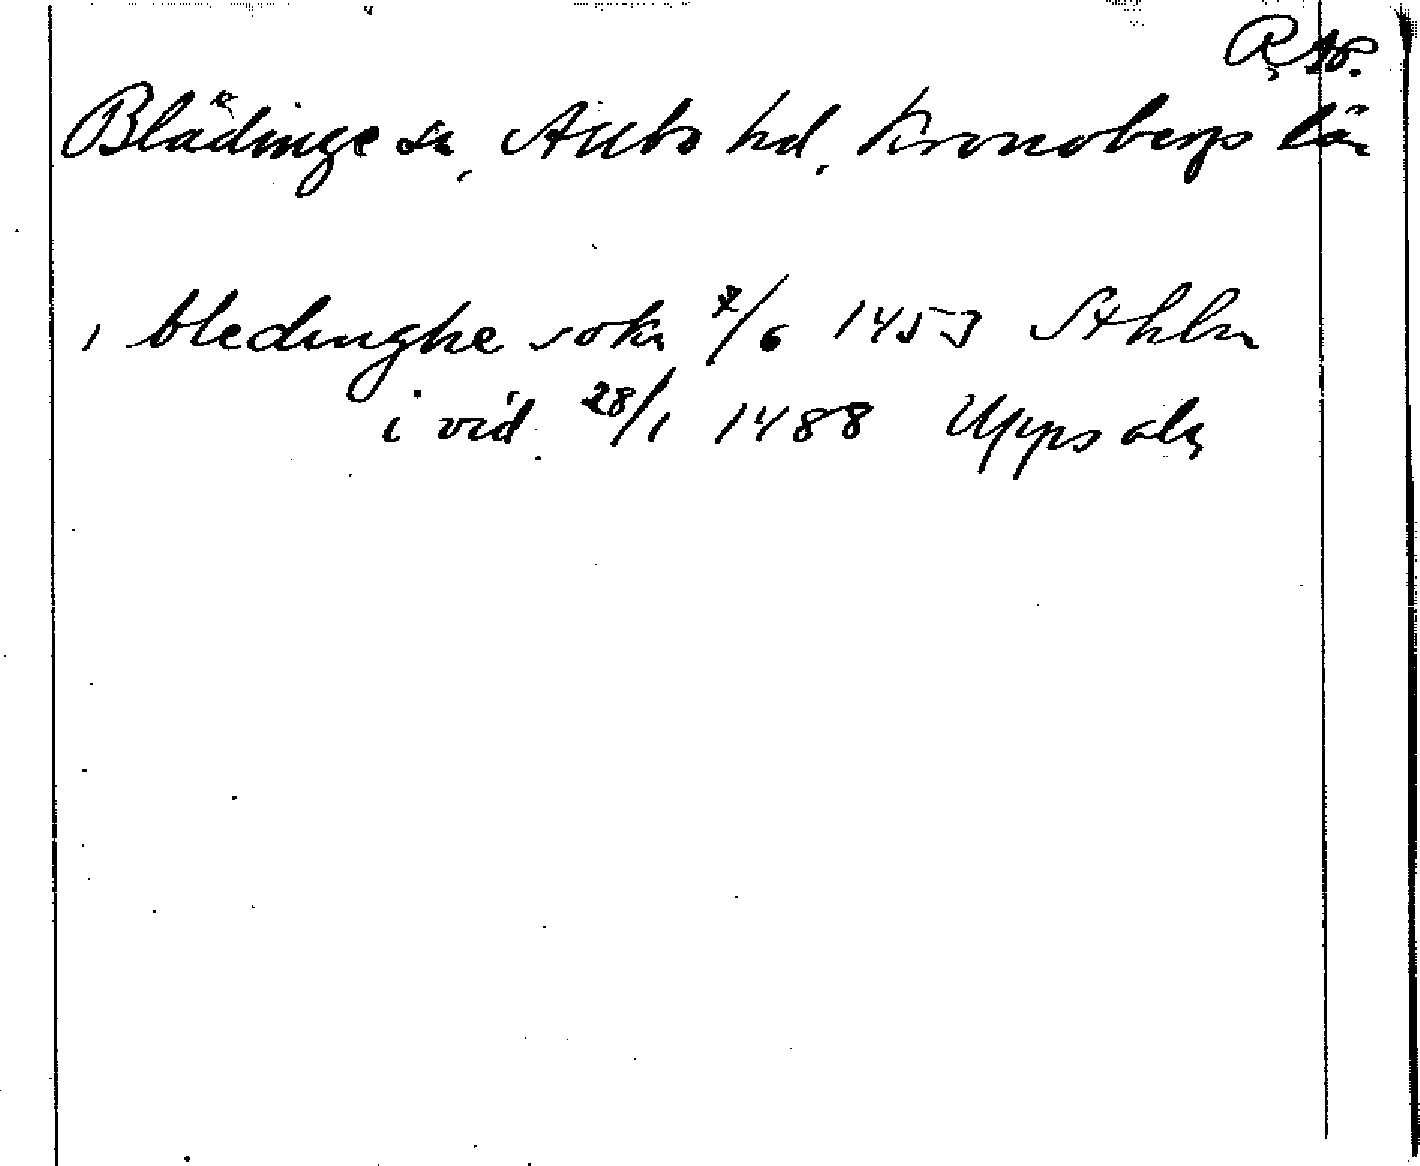 R Ap.
Blädinge sn, Allbo hd, Kronobergs län
i bledinghe sokn 7/6 1453 Sthlm
i vid 28/1 1488 Uppsala